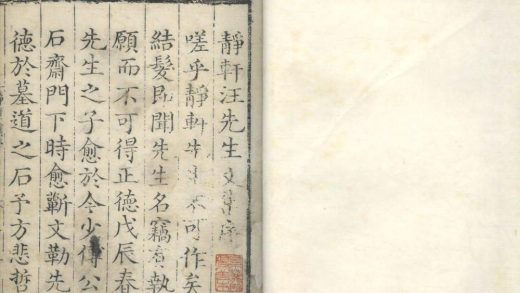 靜軒汪先生文集序
嗟乎靜軒先生不可作矣
結髮即聞先生名竊執
願而不可得正德戊辰春
先生之子愈於今少傅公
石齋門下時愈蘄文勒先
德於墓道之石予方悲哲